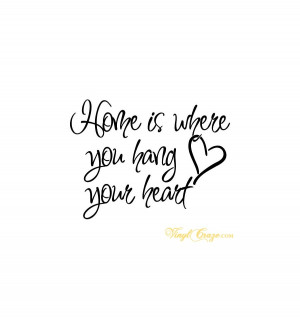 Home is where
you hang
your heart
Vinyl Craze.com